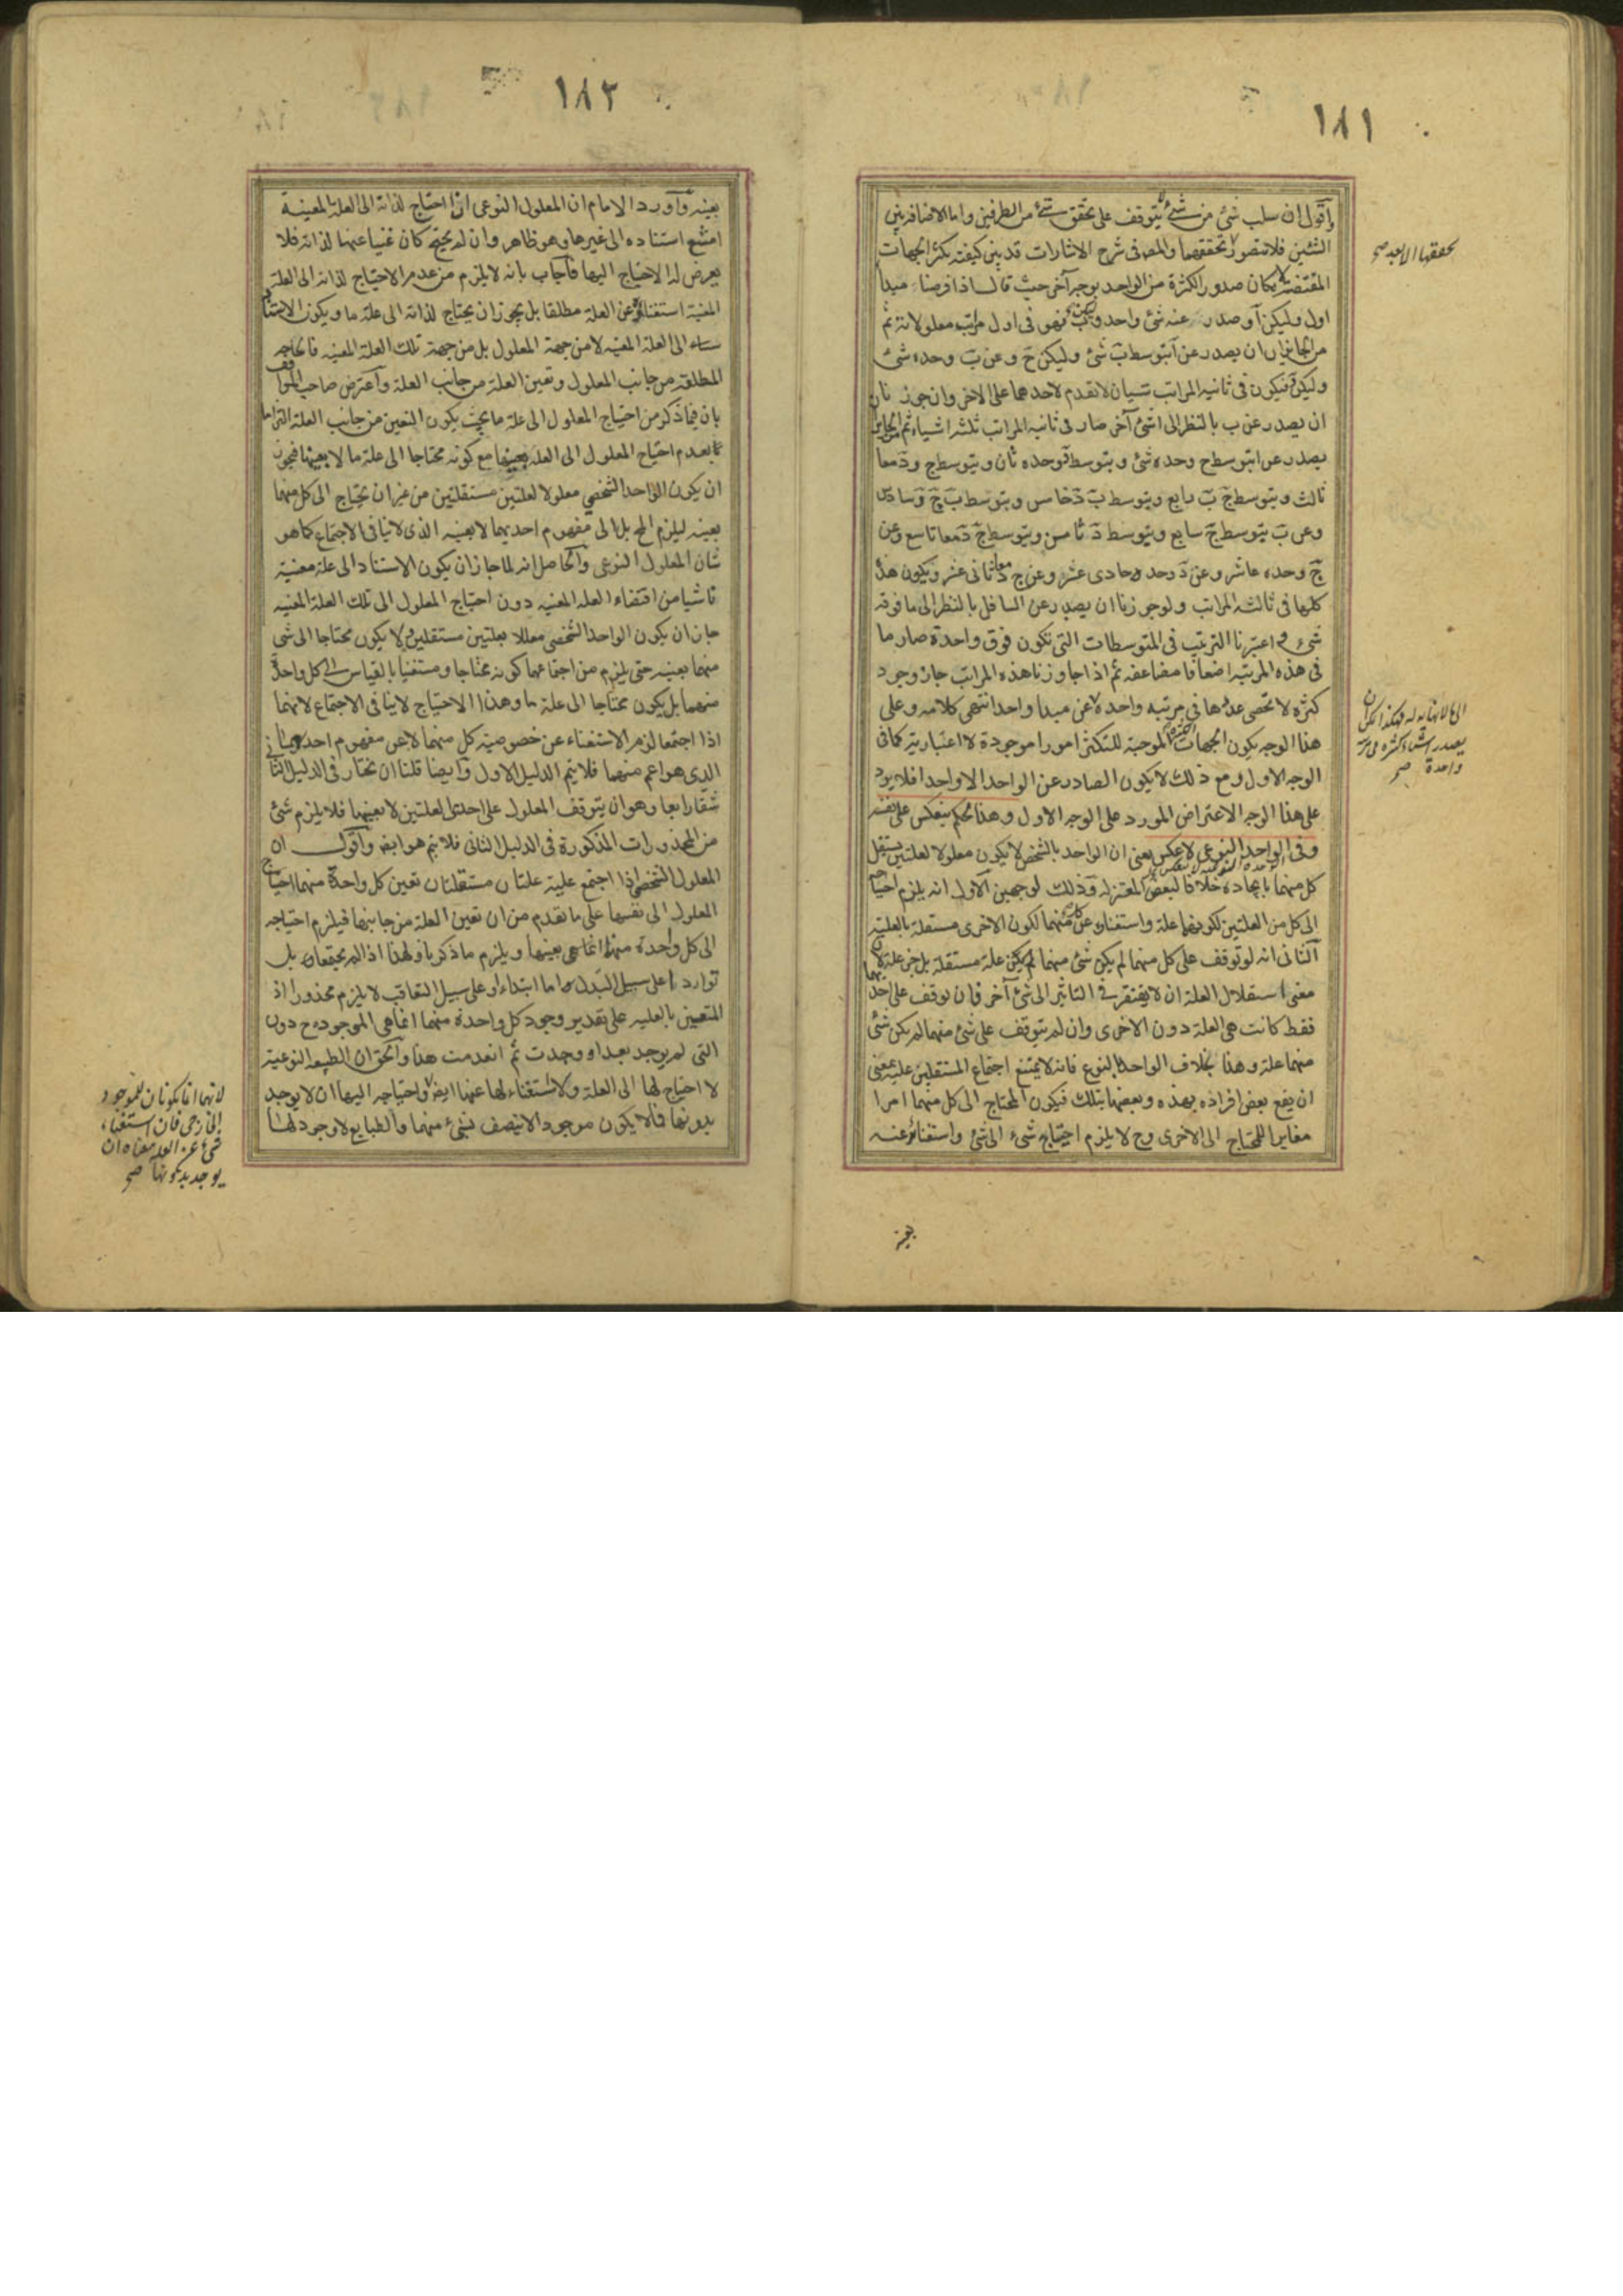 ١٨١
واقول ان سلب شئ من شئ يتوقف على تحقق شئ من الطرفين واما الاضافة بين
الشئين فلا تتصور تحققهما والمص فى شرح الاشارات قد بين كيفية تكثر الجهات
تحققها الا بعد صح
المقتضية لامكان صدور الكثرة من الواحد بوجه آخر حيث قال اذا فرضنا مبدأ
اول وليكن آ وصدر عنه شئ واحد وليكن ب فهو فى اول مراتب معلولاته ثم
من الجايز ان يصدر عن آ بتوسط ب شئ وليكن ج وعن ب وحده شئ
وليكن د فيكون فى ثانية المراتب شيئان لا تقدم لاحدهما على الاخر وان جوزنا
ان يصدر عن ب بالنظر الى آ شئ آخر صار فى ثانية المراتب ثلثة اشياء ثم من الجايز ان
يصدر عن ا بتوسط ج وحده شئ وبتوسط د وحده ثان وبتوسط ج و د معا
ثالث وبتوسط ب ج رابع وبتوسط ب د خامس وبتوسط ب ج د سادس
وعن ب بتوسط ج سابع وبتوسط د ثامن وبتوسط ج د معا تاسع وعن
ج وحده عاشر وعن د وحده حادى عشر وعن ج د معا ثانى عشر ويكون هذه
كلها فى ثالثة المراتب ولو جوزنا ان يصدر عن السافل بالنظر الى ما فوقه
شئ و اعتبرنا الترتيب فى المتوسطات التى تكون فوق واحدة صار ما
فى هذه المرتبة اضعافا مضاعفة ثم اذا جاوزنا هذه المراتب جاز وجود
كثرة لا تحصى عددها فى مرتبة واحدة
الى ما لا نهاية له فهكذا يمكن ان
يصدر اشياء كثيرة فى مرتبة
واحدة صح
عن مبدا واحد انتهى كلامه وعلى
هذا الوجه يكون الجهات الكثيرة الموجبة للتكثر امورا موجودة لا اعتبارية كما فى
الوجه الاول ومع ذلك لا يكون الصادر عن الواحد الا واحدا فلا يرد
على هذا الوجه الاعتراض المورد على الوجه الاول وهذا الحكم ينعكس على نفسه
وفى الواحد النوعى لا عكس يعنى ان الواحد بالشخص لا يكون معلولا لعلتين يستقل
كل منهما بايجاده خلافا لبعض المعتزلة وذلك لوجهين الاول انه يلزم احتياجه
الى كل من العلتين لكونهما علة واستغناؤه عن كل منهما لكون الاخرى مستقلة بالعلية
الثانى انه لو توقف على كل منهما لم يكن شئ منهما علة مستقلة بل جزء علة لان
معنى استقلال العلة ان لا يفتقر فى التاثير الى شئ آخر فان توقف على احديهما
فقط كانت هى العلة دون الاخرى وان لم يتوقف على شئ منهما لم يكن شئ
منهما علة وهذا بخلاف الواحد بالنوع فانه لا يمتنع اجتماع المستقلين عليه بمعنى
ان يقع بعض افراده بهذه وبعضها بتلك فيكون المحتاج الى كل منهما امرا
مغايرا للمحتاج الى الاخرى وح لا يلزم احتياج شئ الى شئ واستغناؤه عنه
بعينه
١٨٢
بعينه وآورد الامام ان المعلول النوعى ان احتاج لذاته الى العلة المعينة
امتنع استناده الى غيرها وهو ظاهر وان لم يحتج كان غنيا عنها لذاته فلا
يعرض له الاحتياج اليها فآجاب بانه لا يلزم من عدم الاحتياج لذاته الى العلة
المعينة استغناؤه عن العلة مطلقا بل يجوز ان يحتاج لذاته الى علة ما ويكون الاستناد
الى العلة المعينة لا من جهة المعلول بل من جهة تلك العلة المعينة فالحاجة
المطلقة من جانب المعلول وتعين العلة من جانب العلة وآعترض صاحب المواقف
بان فيما ذكر من احتياج المعلول الى علة ما بحيث يكون التعين من جانب العلة التزاما
بعدم احتياج المعلول الى العلة بعينها مع كونه محتاجا الى علة ما لا بعينها فيجوز
ان يكون الواحد الشخصى معلولا لعلتين مستقلتين من غير ان يحتاج الى كل منهما
بعينه ليلزم المح بل الى مفهوم احديهما لا بعينه الذى لا ينافى الاجتماع كما هو
شان المعلول النوعى والحاصل انه لما جاز ان يكون الاستناد الى علة معينة
ناشيا من اقتضاء العلة المعينة دون احتياج المعلول الى تلك العلة المعينة
جاز ان يكون الواحد الشخصى معللا بعلتين مستقلتين ولا يكون محتاجا الى شئ
منهما بعينه حتى يلزم من اجتماعهما كونه محتاجا ومستغنيا بالقياس الى كل واحدة
منهما بل يكون محتاجا الى علة ما وهذا الاحتياج لا ينافى الاجتماع لانهما
اذا اجتمعا لزم الاستغناء عن خصوصية كل منهما لا عن مفهوم احديهما
الذى هو اعم منهما فلا يتم الدليل الاول وآيضا قلنا ان نختار فى الدليل الثانى
شقا رابعا وهو ان يتوقف المعلول على احدى العلتين لا بعينها فلا يلزم شئ
من المحذورات المذكورة فى الدليل الثانى فلا يتم هو ايضا وآقول ان
المعلول الشخصى اذا اجتمع عليه علتان مستقلتان تعين كل واحدة منهما احتياج
المعلول الى نفسها على ما تقدم من ان تعين العلة من جانبها فيلزم احتياجه
الى كل واحدة منهما بعينها ويلزم ما ذكرنا ولهذا اذا لم يجتمعا بل
تواردا على سبيل البدل اما ابتداء او على سبيل التعاقب لا يلزم محذور اذ
المتعين بالعلية على تقدير وجود كل واحدة منهما انما هى الموجودة ح دون
التى لم يوجد بعد او وجدت ثم انعدمت هذا وآلحق ان الطبيعة النوعية
لا احتياج لها الى العلة ولا استغناء لها عنها ايضا
لانهما انما يكونان للموجود
الخارجى فان استغناء
شئ عن العلة معناه ان
يوجد بدونها صح
واحتياجه اليها ان لا يوجد
بدونها فلا يكون موجود الا يتصف بشئ منهما والطبايع لا وجود لها